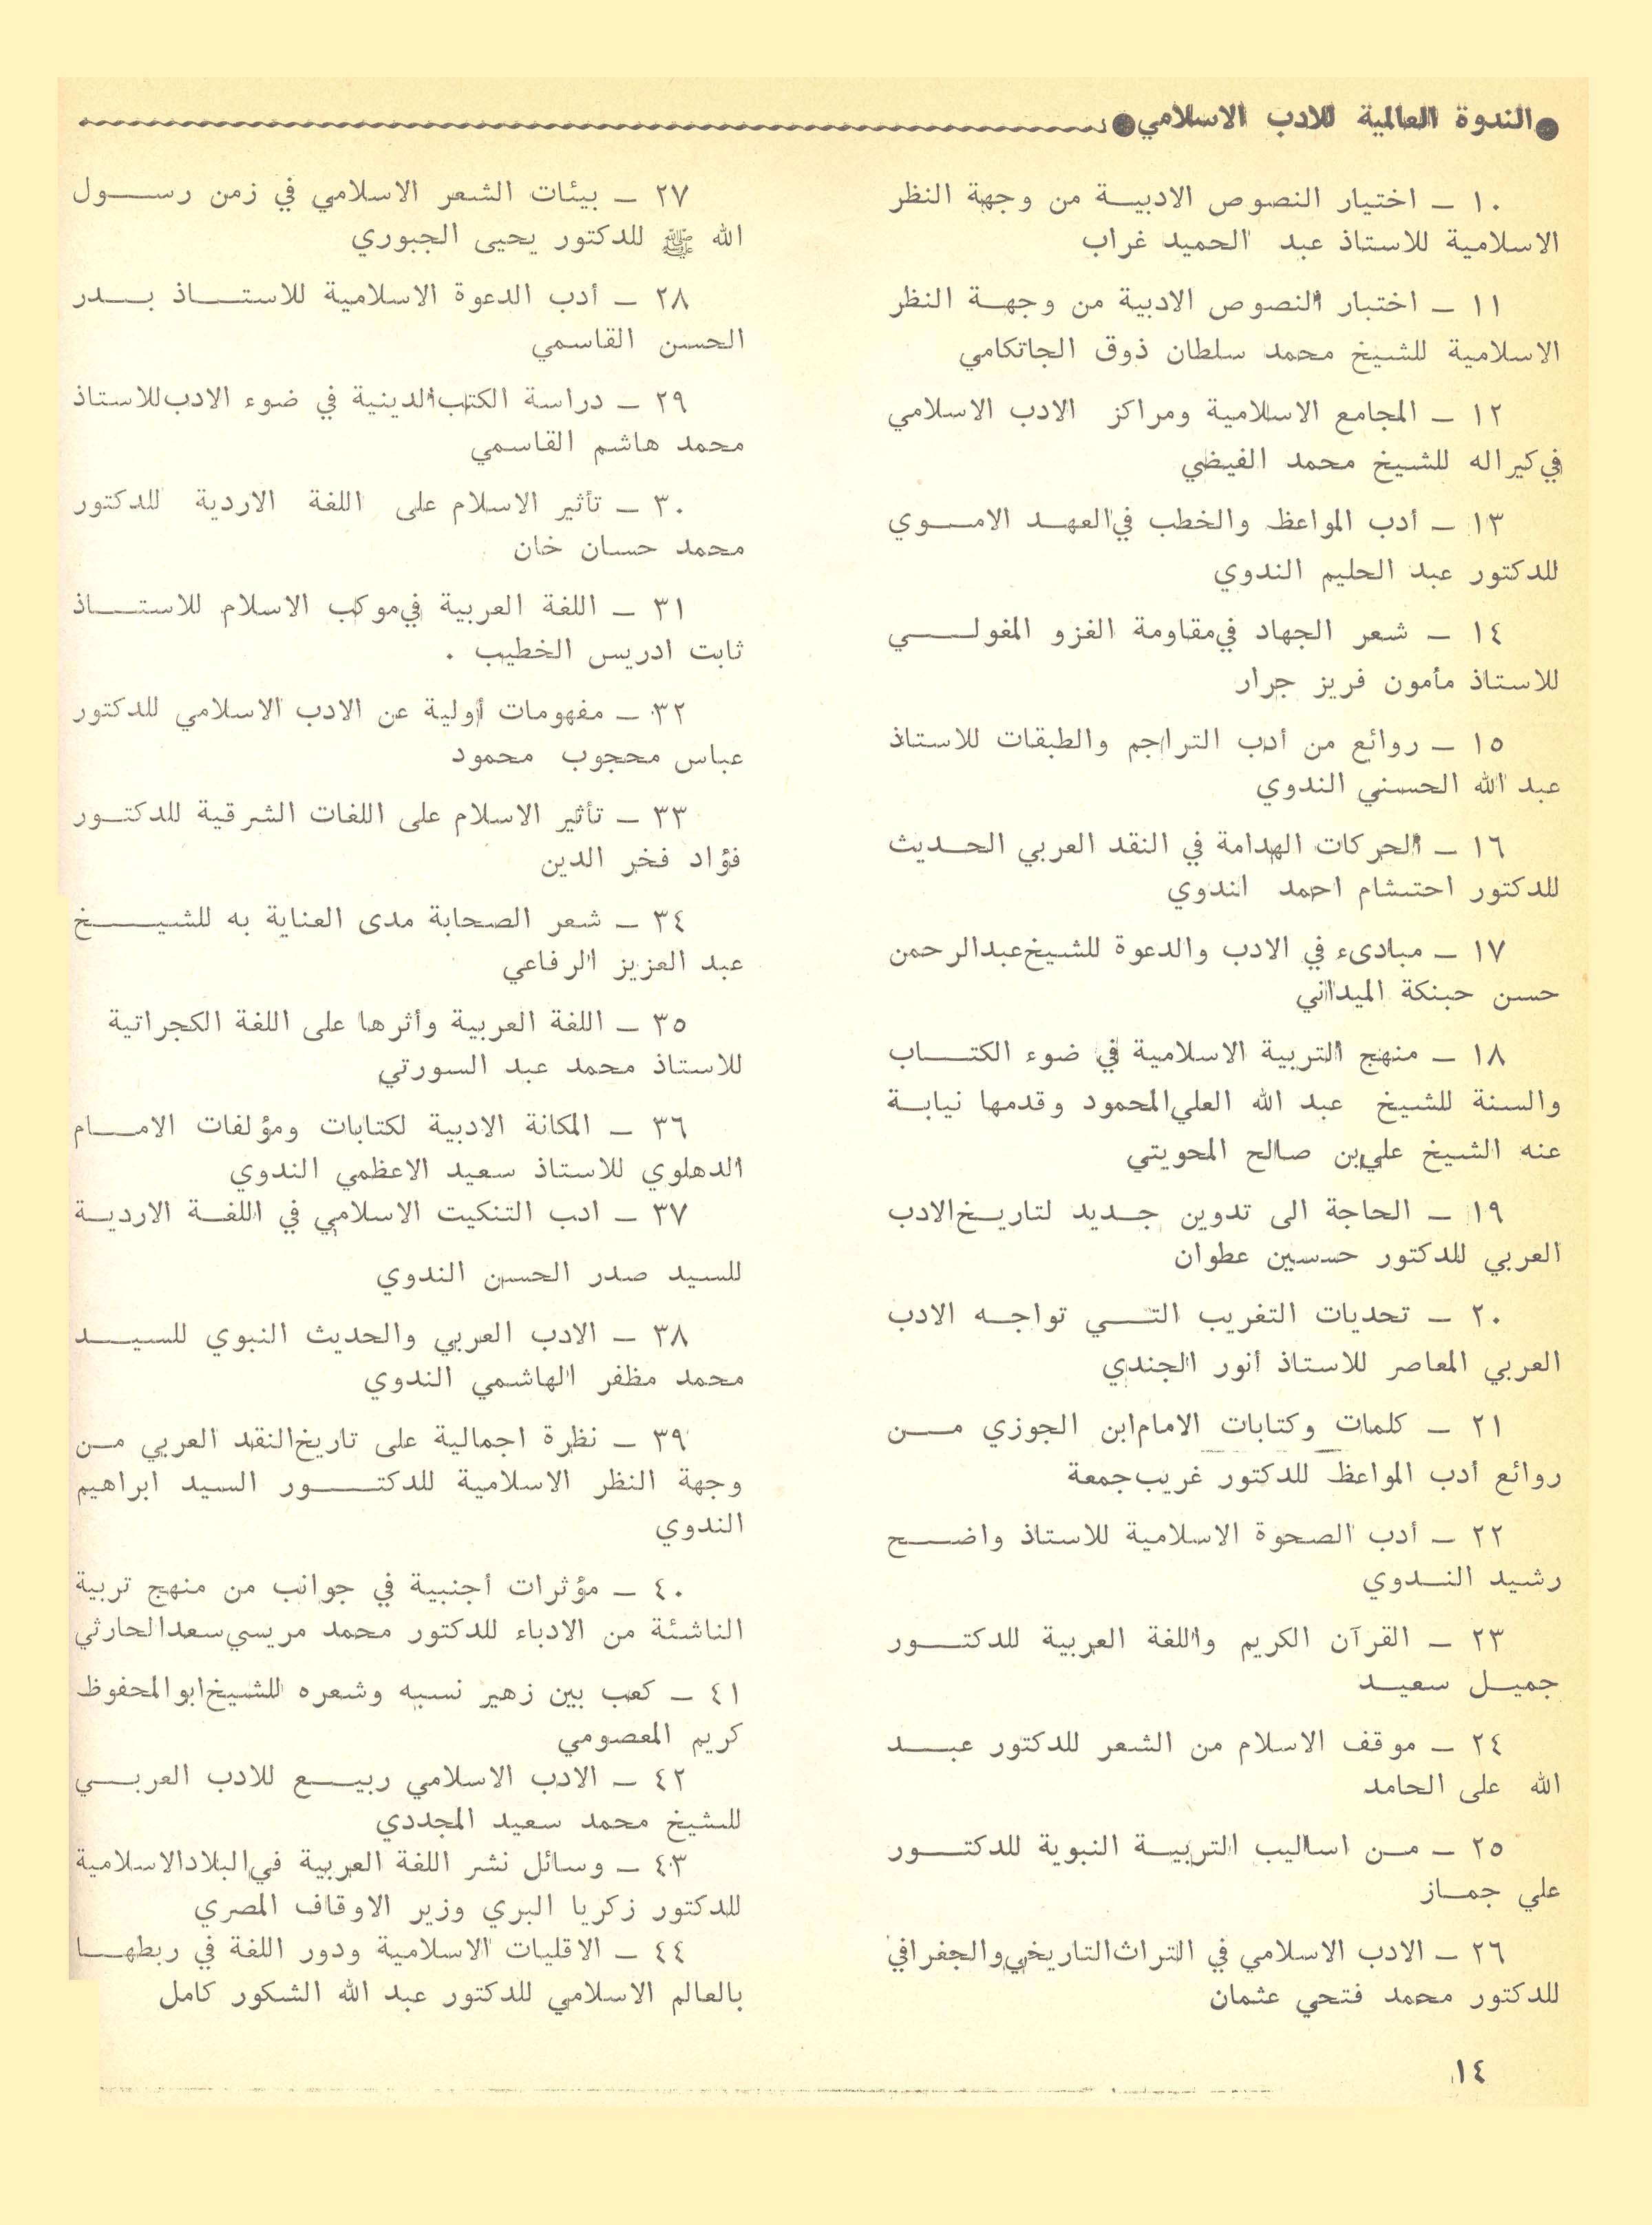 ●الندوة العالمية للادب الاسلامي●
١٠ ــ اختيار النصوص الادبيـة من وجهة النظر
الاسلامية للاستاذ عبد الحميد غراب
١١ ــ اختبار النصوص الادبية من وجهـة النظر
الاسلامية للشيخ محمد سلطان ذوق الجاتكامي
١٢ ــ المجامع الاسلامية ومراكز الادب الاسلامي
في كيراله للشيخ محمد الفيضي
١٣ ــ أدب المواعظ والخطب في العهـد الامـوي
للدكتور عبد الحليم الندوي
١٤ ــ شعر الجهاد في مقاومة الغزو المغولـي
للاستاذ مأمون فريز جرار
١٥ ــ روائع من أدب التراجم والطبقات للاستاذ
عبد الله الحسني الندوي
١٦ ــ الحركات الهدامة في النقد العربي الحـديث
للدكتور احتشام احمد الندوي
١٧ ــ مبادىء في الادب والدعوة للشيخ عبدالرحمن
حسن حبنكة الميداني
١٨ ــ منهج التربية الاسلامية في ضوء الكتـاب
والسنة للشيخ عبد الله العلي المحمود وقدمها نيابـة
عنه الشيخ علي بن صالح المحويتي
١٩ ــ الحاجة الى تدوين جـديد لتاريـخ الادب
العربي للدكتور حسسين عطوان
٢٠ ــ تحديات التغريب التـي تواجـه الادب
العربي المعاصر للاستاذ أنور الجندي
٢١ ــ كلمات وكتابات الامام ابن الجوزي مـن
روائع أدب المواعظ للدكتور غريب جمعة
٢٢ ــ أدب الصحوة الاسلامية للاستاذ واضـح
رشيد النـدوي
٢٣ ــ القرآن الكريم واللغة العربية للدكتـور
جميـل سعيـد
٢٤ ــ موقف الاسلام من الشعر للدكتور عبـد
الله على الحامد
٢٥ ــ مـن اساليب التربيـة النبوية للدكتـور
علي جمـاز
٢٦ ــ الادب الاسلامي في التراث التاريخي والجغرافي
للدكتور محمد فتحي عثمان
٢٧ ــ بيئات الشعر الاسلامي في زمن رسـول
الله ﷺ للدكتور يحيى الجبوري
٢٨ ــ أدب الدعوة الاسلامية للاستـاذ بـدر
الحسن القاسمي
٢٩ ــ دراسة الكتب الدينية في ضوء الادب للاستاذ
محمد هاشم القاسمي
٣٠ ــ تأثير الاسلام على اللغة الاردية للدكتور
محمد حسان خان
٣١ ــ اللغة العربية في موكب الاسلام للاستـاذ
ثابت ادريس الخطيب .
٣٢ ــ مفهومات أولية عن الادب الاسلامي للدكتور
عباس محجوب محمود
٣٣ ــ تأثير الاسلام على اللغات الشرقية للدكتـور
فؤاد فخر الدين
٣٤ ــ شعر الصحابة مدى العناية به للشيـخ
عبد العزيز الرفاعي
٣٥ ــ اللغة العربية وأثرها على اللغة الكجراتية
للاستاذ محمد عبد السورتي
٣٦ ــ المكانة الادبية لكتابات ومؤلفات الامـام
الدهلوي للاستاذ سعيد الاعظمي الندوي
٣٧ ــ ادب التنكيت الاسلامي في اللغـة الارديـة
للسيد صدر الحسن الندوي
٣٨ ــ الادب العربي والحديث النبوي للسيـد
محمد مظفر الهاشمي الندوي
٣٩ ــ نظرة اجمالية على تاريخ النقد العربي مـن
وجهة النظر الاسلامية للدكتـور السيد ابراهيم
الندوي
٤٠ ــ مؤثرات أجنبية في جوانب من منهج تربية
الناشئة من الادباء للدكتور محمد مريسي سعد الحارثي
٤١ ــ كعب بين زهير نسبه وشعره للشيخ ابو المحفوظ
كريم المعصومي
٤٢ ــ الادب الاسلامي ربيـع للادب العربـي
للشيخ محمد سعيد المجددي
٤٣ ــ وسائل نشر اللغة العربية في البلاد الاسلامية
للدكتور زكريا البري وزير الاوقاف المصري
٤٤ ــ الاقليات الاسلامية ودور اللغة في ربطهـا
بالعالم الاسلامي للدكتور عبد الله الشكور كامل
١٤